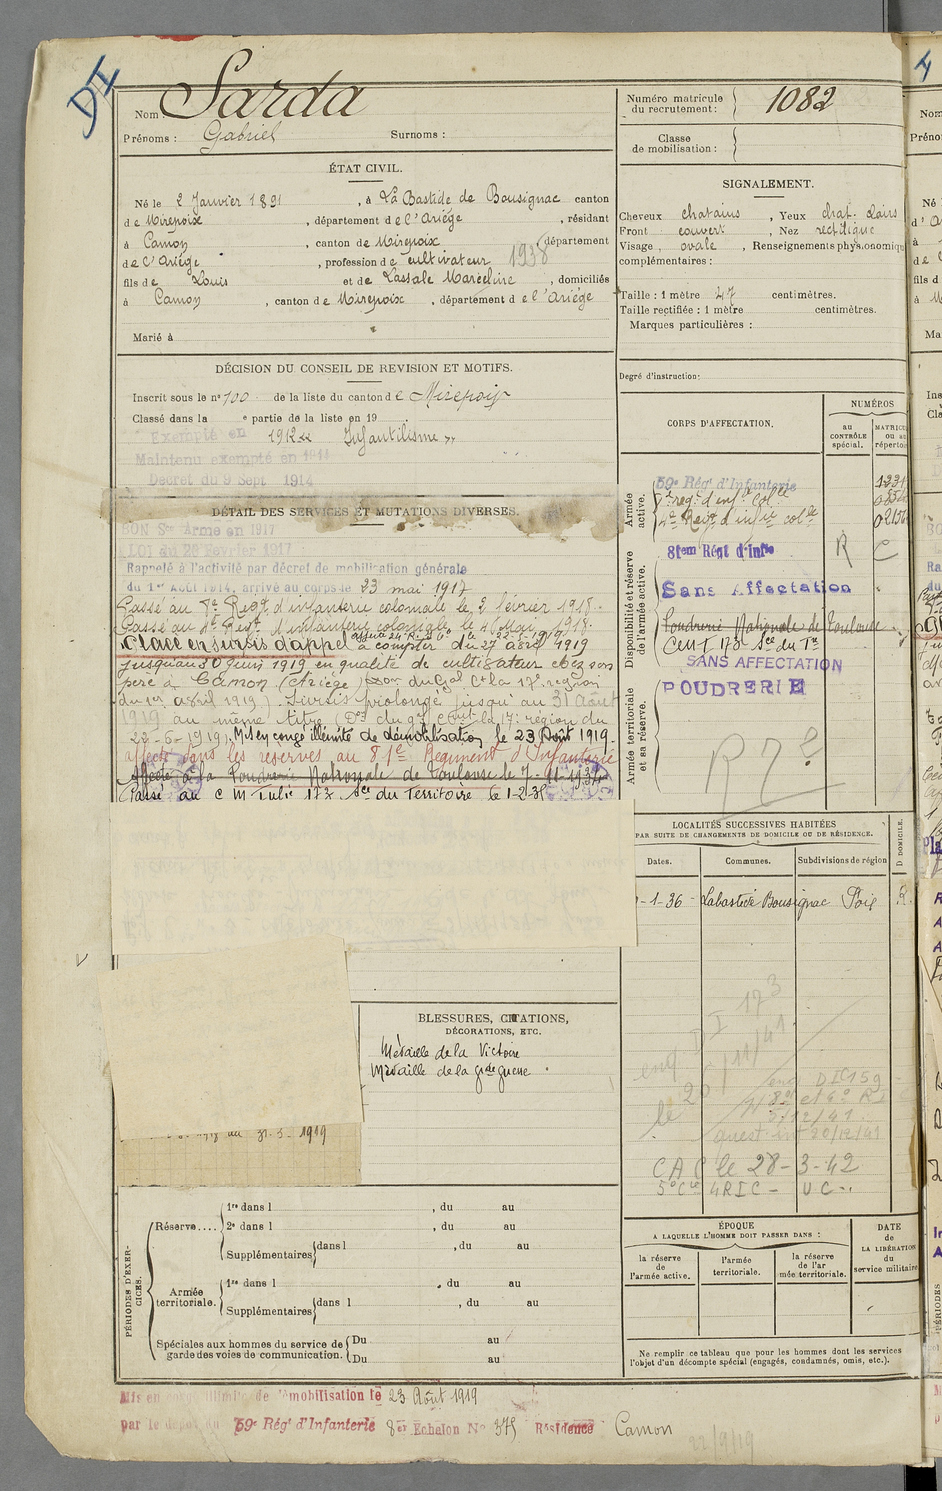 DI
Nom Sarda
Prénoms : Gabriel Surnoms :
Numéro matricule du recrutement : 1082
Classe de mobilisation :
ÉTAT CIVIL.
Né le 2 Janvier 1891, à La Bastide de Bousignac canton
de Mirepoix, département de l'Ariège, résidant
à Camon, canton de Mirepoix, département
de l'Ariège, profession de cultivateur 1938
fils de Louis et de Lassale Marceline, domiciliés
à Camon, canton de Mirepoix, département de l'Ariège
Marié à
SIGNALEMENT.
Cheveux chatains, Yeux chat. clairs
Front couvert, Nez rectiligne
Visage, ovale, Renseignements physionomiq
complémentaires :
Taille : 1 mètre 47 centimètres.
Taille rectifiée : 1 mètre centimètres.
Marques particulières :
Degré d'instruction:
DÉCISION DU CONSEIL DE REVISION ET MOTIFS.
Inscrit sous le n° 100 de la liste du canton de Mirepoix
Classé dans la e partie de la liste en 19
Exempté en 1912 Infantilisme
Maintenu exempté en 1914
Décret du 9 Sept 1914
DÉTAIL DES SERVICES ET MUTATIONS DIVERSES.
BON Sce Armé en 1917
LOI du 20 Février 1917
Rappelé à l'activité par décret de mobilisation générale
du 1er Août 1914, arrivé au corps le 23 mai 1917
Passé au 7e Regt d'infanterie coloniale le 2 février 1918.
Passé au 4e Regt d'infanterie coloniale le 4 Mai 1918.
Placé en sursis d'appel à compter du 27 avril 1919
jusqu'au 30 juin 1919 en qualité de cultivateur chez son
père à Camon (Ariège) du Gal Ct la 17e region
du 1er avril 1919). Sursis prolongé jusqu'au 31 Août
1919 au même titre (Don du gal Ct la 17e région du
22-6-1919). Mis en congé illimité de démobilisation le 23 Août 1919.
affecté dans les réserves au 81e Regiment d'Infanterie
Affecté à la Poudrerie Nationale de Toulouse le 7-11-193
Passé au C M Tulie 173 Sce du Territoire le 1-2-35
CORPS D'AFFECTATION.
NUMÉROS
au CONTRÔLE spécial.
MATRICU ou au répertoi
Armée active.
59e Rég' d'Infanterie
7e reg' d'infie Colle
4e Regt d'infie colle
Disponibilité et réserve de l'armée active.
81em Régt d'Infie R C
Sans Affectation
Poudrerie Nationale de Toulouse
Cent 173 Sce du Tre
SANS AFFECTATION
POUDRERIE
Armée territoriale et sa réserve.
R 7e
LOCALITÉS SUCCESSIVES HABITÉES
PAR SUITE DE CHANGEMENTS DE DOMICILE OU DE RÉSIDENCE.
Dates. Communes. Subdivisions de région D. DOMICILE.
-1-36 - Labastide Bousignac Foix R.
enq DI 173
le 26/11/41
DIC 159
20/12/41
CAC le 28-3-42
5e Cie 4RIC - UC -
BLESSURES, CITATIONS,
DÉCORATIONS, ETC.
Médaille de la Victoire
Médaille de la gde guerre
au 31.3-1919
PÉRIODES D'EXERCICES.
Réserve....
1re dans l , du au
2e dans l , du au
Supplémentaires dans l , du au
Armée territoriale.
1re dans l , du au
Supplémentaires dans l , du au
Spéciales aux hommes du service de garde des voies de communication.
Du au
Du au
ÉPOQUE
A LAQUELLE L'HOMME DOIT PASSER DANS :
la réserve de l'armée active.
l'armée territoriale.
la réserve de l'armée territoriale.
DATE de LA LIBÉRATION du service militaire
Ne remplir ce tableau que pour les hommes dont les services
l'objet d'un décompte spécial (engagés, condamnés, omis, etc.).
Mis en congé illimité de démobilisation le 23 Août 1919
par le dépôt du 59e Régt d'Infanterie 8er Echelon No 375 Résidence Camon
22/9/19